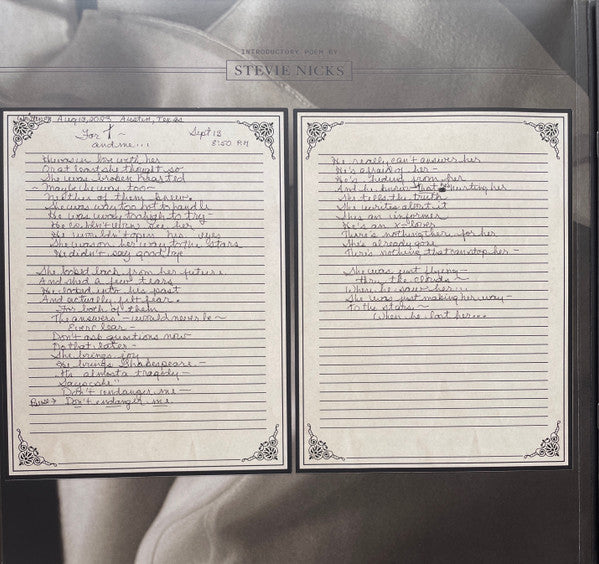 INTRODUCTORY POEM BY
STEVIE NICKS
Written Aug 13, 2023 Austin, Texas
For T ~
Sept 13
and me...
8:50 P.M
He was in love with her
Or at least she thought so
She was broken hearted
~ Maybe he was too ~
Neither of them knew
She was way too hot to handle
He was way too high to try -
He couldn't even see her
He wouldn't open his eyes
She was on her way to the stars
He didn't say goodbye
She looked back from her future
And shed a few tears
He looked into his past
And actually felt fear.
For both of them
The answers - would never be ~
Ever clear -
Don't ask questions now
Do that later -
She brings joy
He brings Shakespeare -
It's almost a tragedy -
Says "she"
Don't endanger me -
Don't endanger me
He really can't answer her
He's afraid of her -
He's hiding from her
And he knows that he's hurting her
She tells the truth
She writes about it
She's an informer
He's an x-lover
There's nothing there for her
She's already gone
There's nothing that can stop her -
She was just flying -
thru the clouds -
When he saw her...
She was just making her way -
to the stars ~
When he lost her...